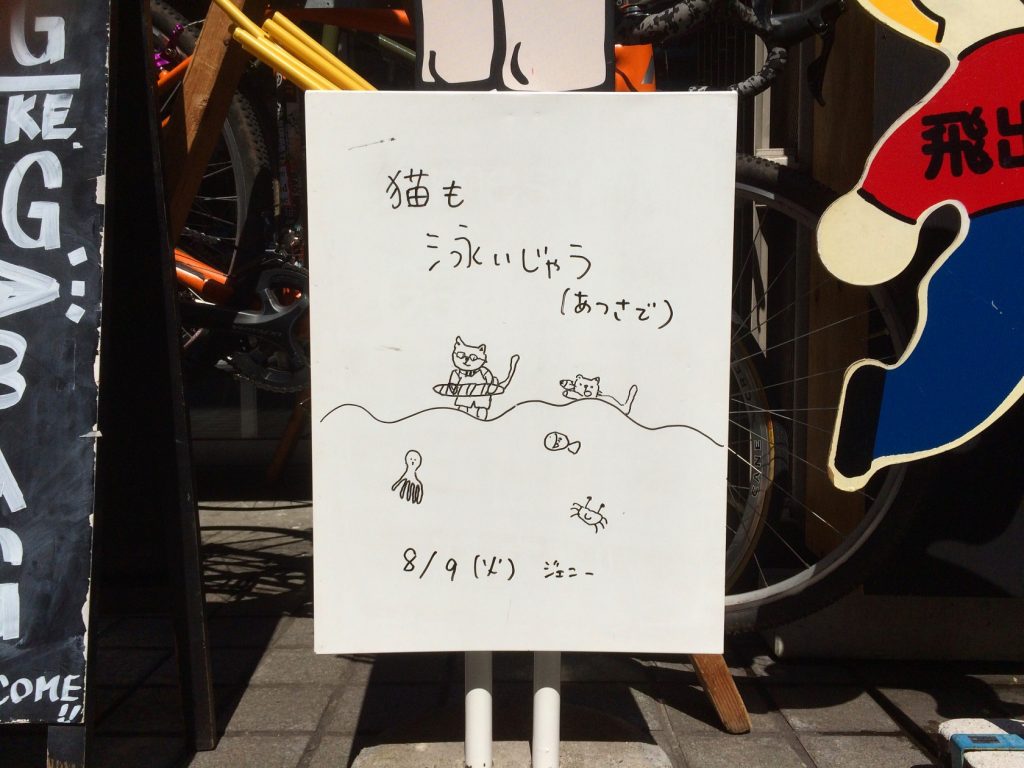 猫も
泳いじゃう
(あつさで)
8/9 (火) ジェニー
飛出
G
KE.
G
COME!!